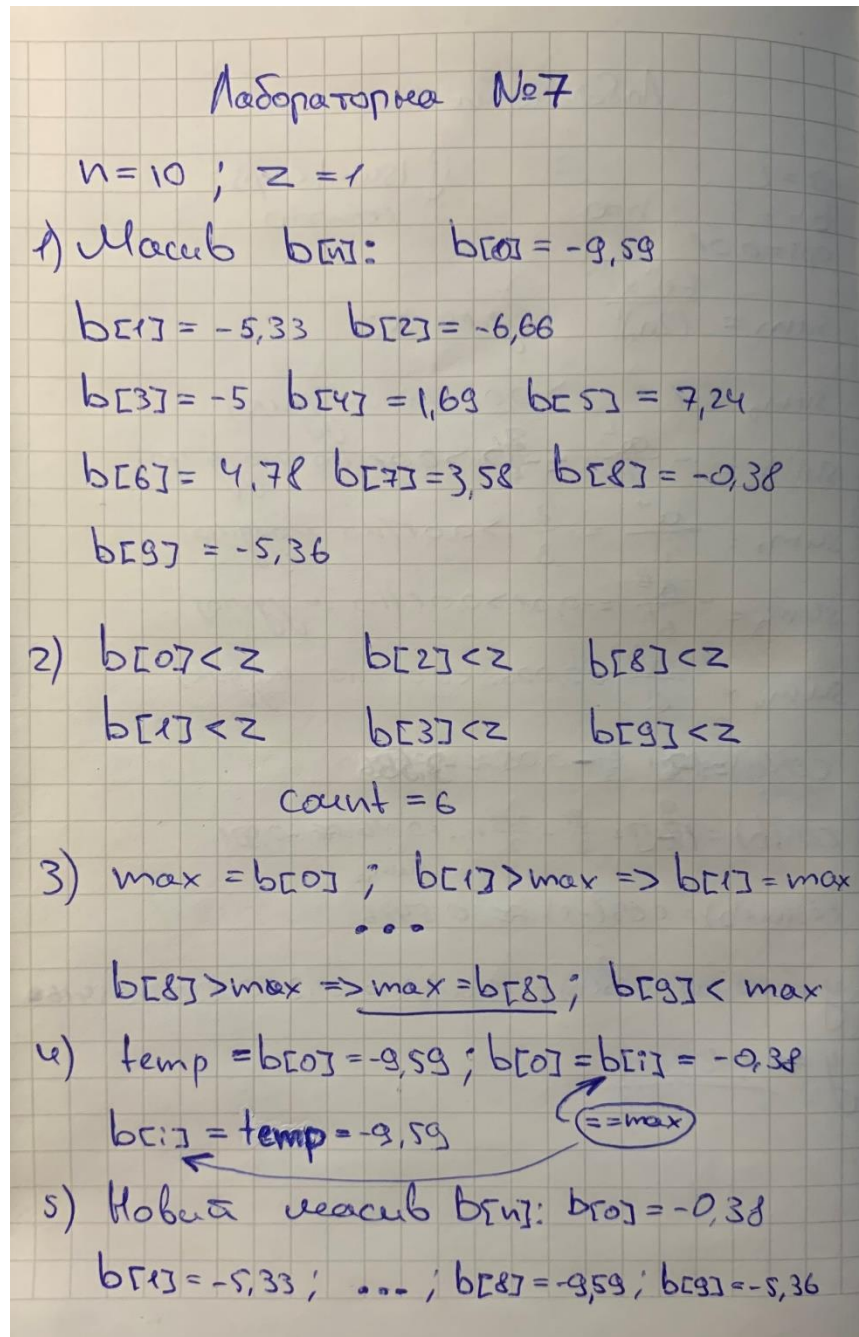 Лабораторна №7
n=10 ; z=1
1) Масив b[n]: b[0] = -9,59
b[1] = -5,33 b[2] = -6,66
b[3] = -5 b[4] = 1,69 b[5] = 7,24
b[6] = 4,78 b[7] = 3,58 b[8] = -0,38
b[9] = -5,36
2) b[0]<z b[2]<z b[8]<z
b[1]<z b[3]<z b[9]<z
count = 6
3) max = b[0] ; b[1]>max => b[1] = max
...
b[8]>max => max = b[8] ; b[9] < max
4) temp = b[0] = -9,59 ; b[0] = b[i] = -0,38
b[i] = temp = -9,59 ==max
5) Новий масив b[n]: b[0] = -0,38
b[1] = -5,33 ; ... ; b[8] = -9,59 ; b[9] = -5,36